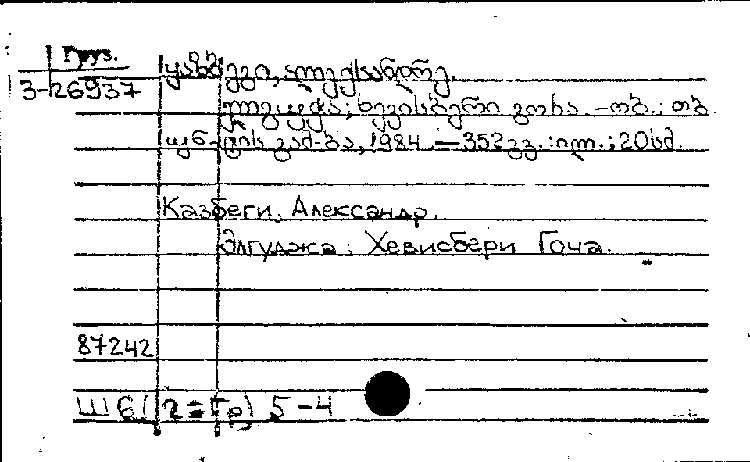 Груз.
3-26937
ყაზბეგი, ალექსანდრე.
ელგუჯა; ხევისბერი გოჩა. -თბ.: თბ.
უნ-ტის გამ-ბა, 1984. — 352გვ.: ილ.; 20სმ.
Казбеги, Александр.
Элгуджа; Хевисбери Гоча.
87242
Ш6(2=Гр) 5-4